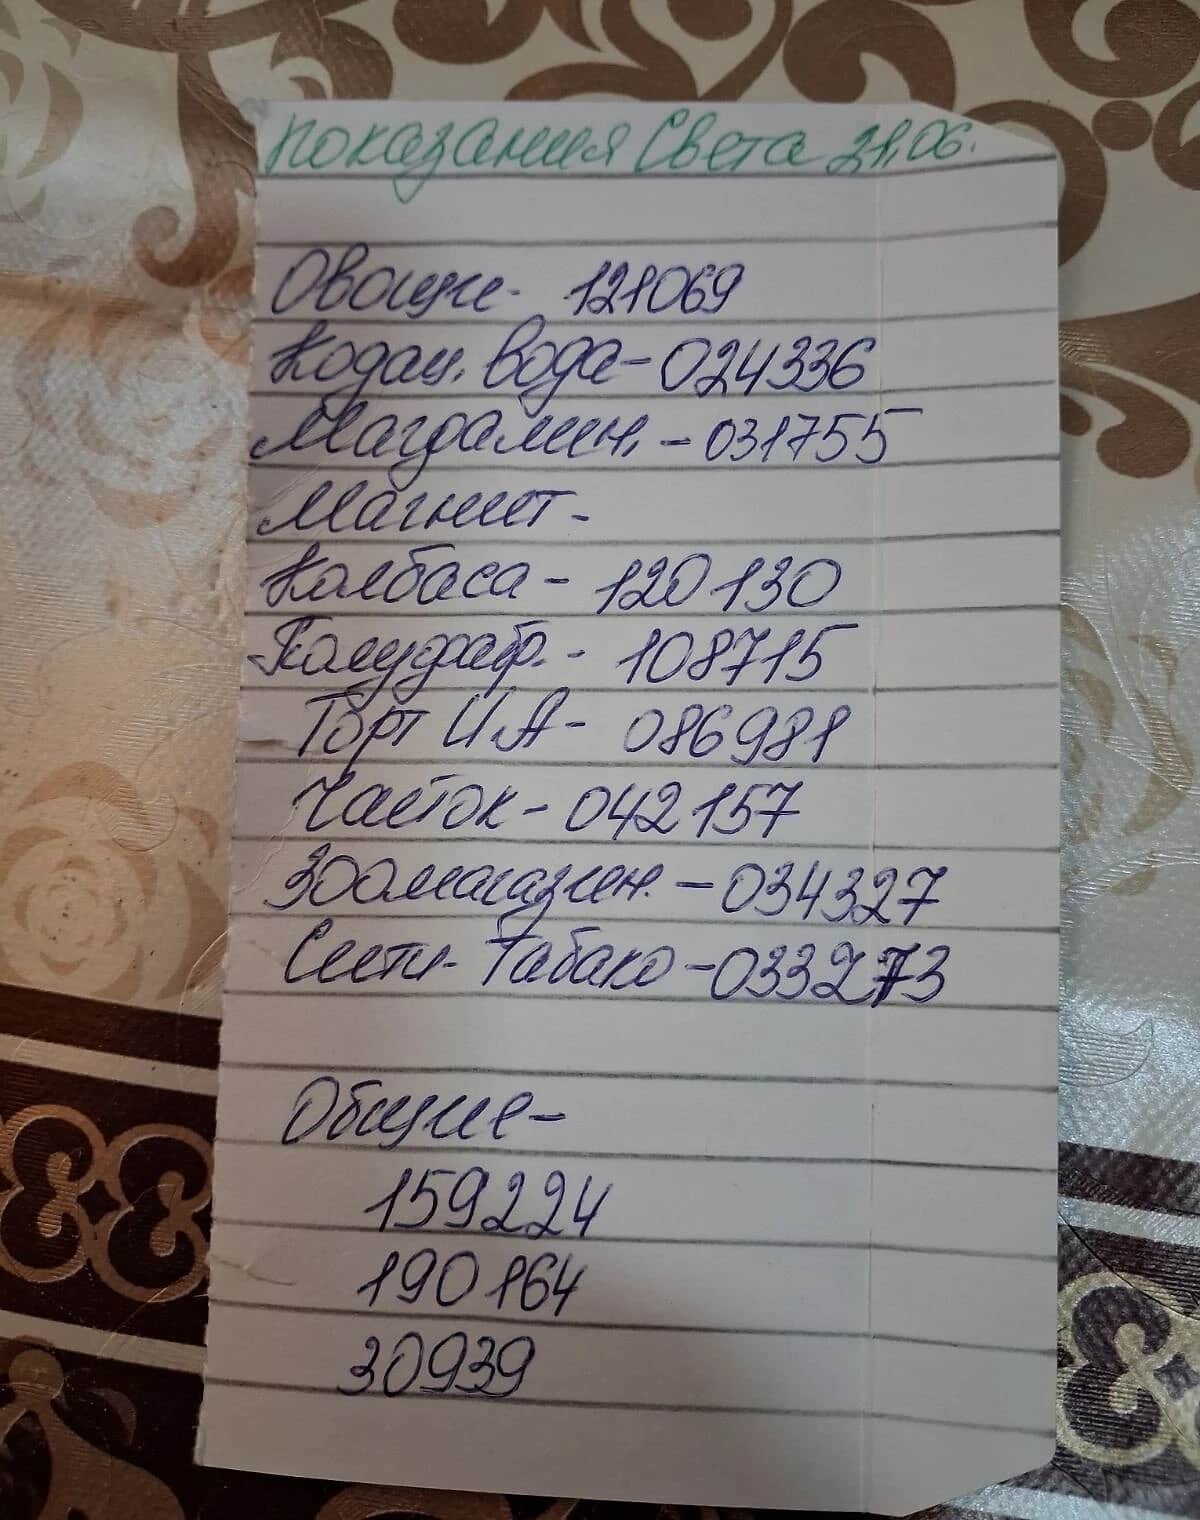 Показания Света 21,06.
Овощи - 121069
вода - 024336
Магдалин. - 031755
Магнит -
Колбаса - 120130
Полуфабр. - 108715
Торт И.А - 086981
Чаёток - 042157
Зоомагазин. - 034327
Сити - Табако - 033273
Общие -
159224
190164
30939